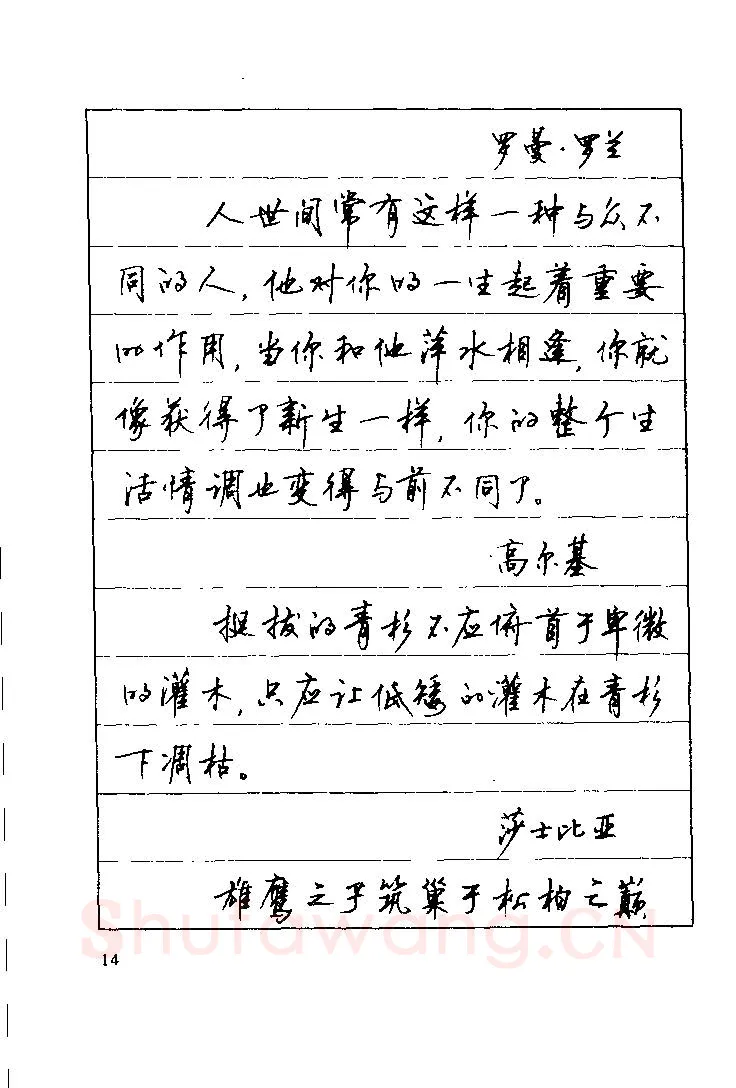 罗曼·罗兰
人世间常有这样一种与众不
同的人,他对你的一生起着重要
的作用,当你和他萍水相逢,你就
像获得了新生一样,你的整个生
活情调也变得与前不同了。
高尔基
挺拔的青杉不应俯首于卑微
的灌木,只应让低矮的灌木在青杉
下凋枯。
莎士比亚
雄鹰之子筑巢于松柏之巅
14
Shufawang.CN